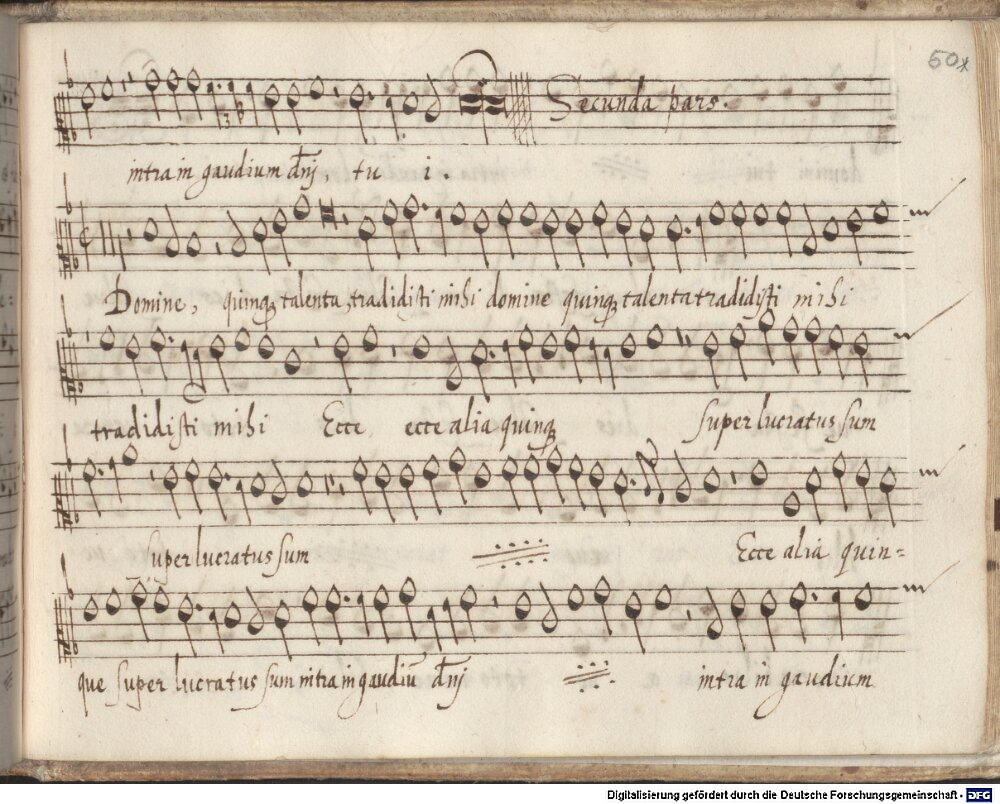 50x
Secunda pars.
intra in gaudium dnj, tu i.
Domine, quinq3 talenta tradidisti mihi domine quinq3 talenta tradidisti mihi
tradidisti mihi Ecce, ecce alia quinq3 super lucratus sum
super lucratus sum Ecce alia quin=
que super lucratus sum intra in gaudiū dnj intra in gaudium
Digitalisierung gefördert durch die Deutsche Forschungsgemeinschaft - DFG